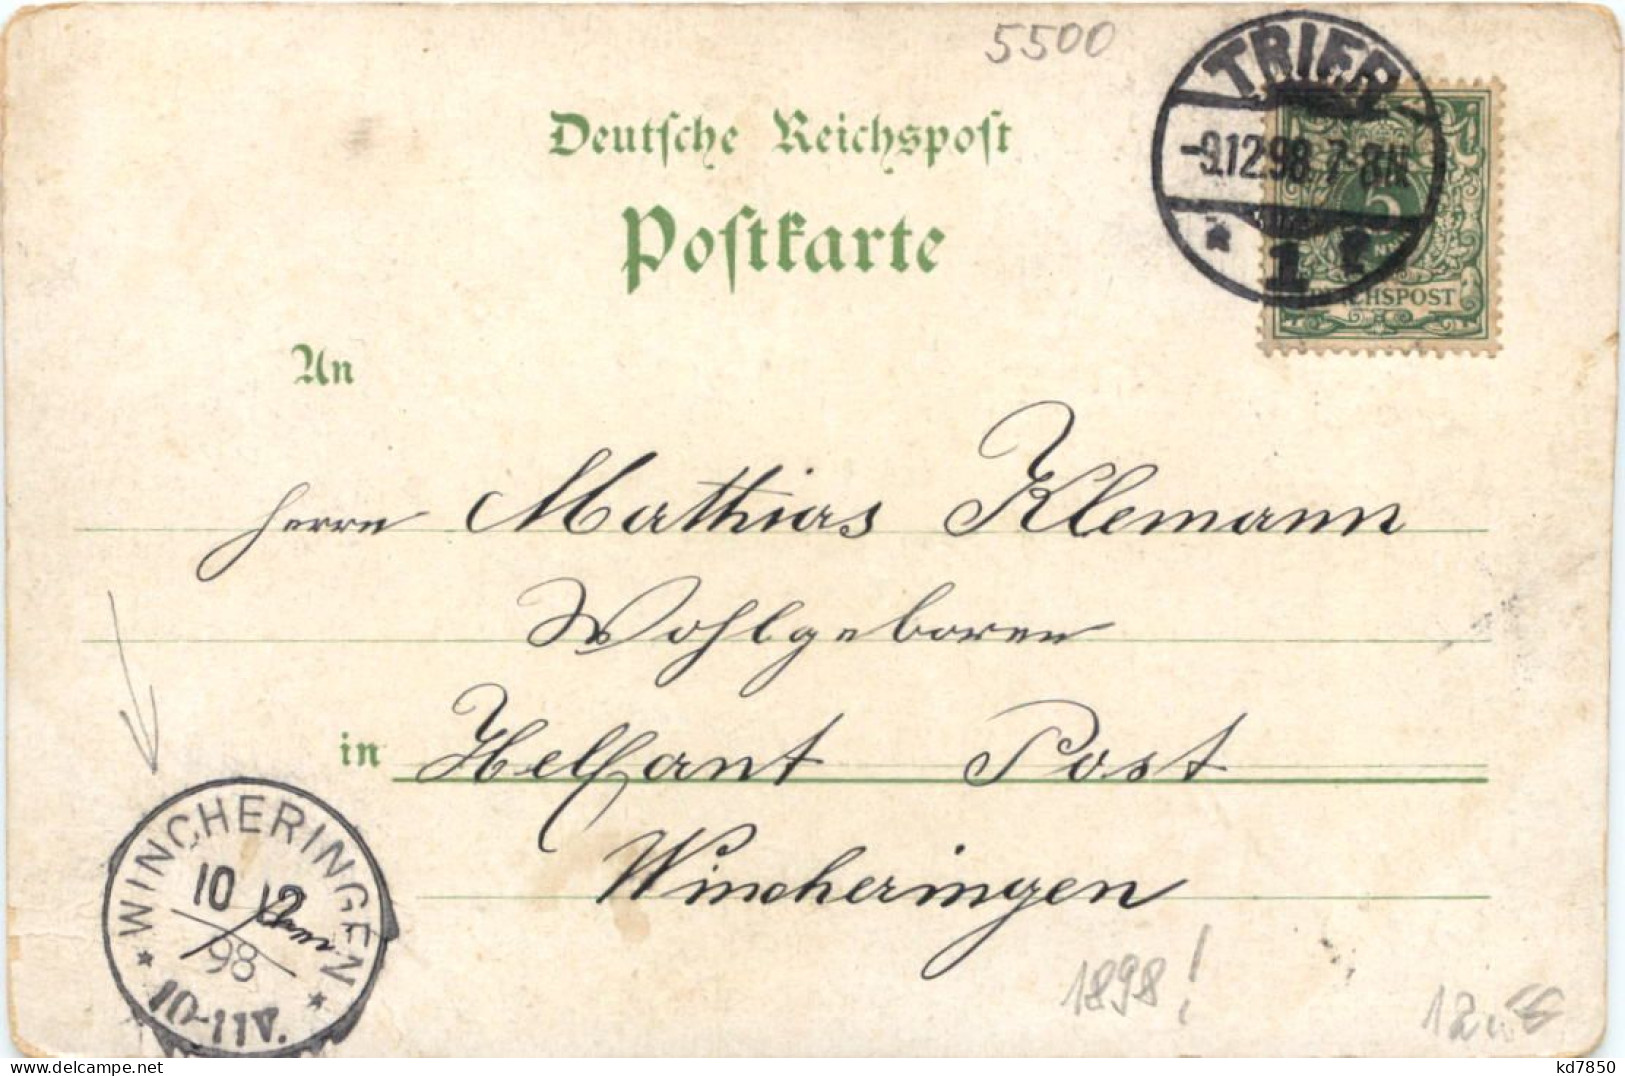 5500
TRIER
-9.12.98.7-8N.
* 1 f
5
REICHSPOST
Deutsche Reichspost
Postkarte
An
Herrn Mathias Klemann
Wohlgeboren
in Helfant Post
Wincheringen
* WINCHERINGEN *
10 12
98
10-11V.
1898!
kd7850